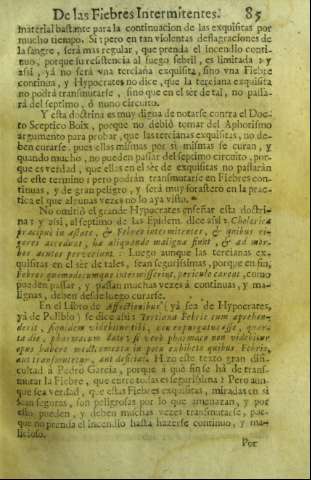 De las Fiebres Intermitentes. 85
material bastante para la continuacion de las exquisitas por
mucho tiempo. Si; pero en tan violentas deflagraciones de
la sangre, será mas regular, que prenda el incendio conti-
nuo, porque su resistencia al fuego febril, es limitada; y
assi, yá no será vna terciana exquisita, sino vna Fiebre
continua, y Hypocrates no dice, que la terciana exquisita
no podrá transmutarse, sino que en el sér de tal, no passa-
rá del septimo, ò nuno circuito.
Y esta doctrina es muy digna de notarse contra el Doc-
to Sceptico Boix, porque no debiò tomar del Aphorismo
argumento para probar, que las tercianas exquisitas, no de-
ben curarse, pues ellas mismas por sí mismas se curan, y
quando mucho, no pueden passar del septimo circuito, por-
que es verdad, que ellas en el sér de exquisitas no passarán
de este termino; pero podrán transmutarse en Fiebres con-
tinuas, y de gran peligro, y será muy forastero en la prac-
tica el que algunas vezes no lo aya visto.
No omitiò el grande Hypocrates enseñar esta doctri-
na; y assi, al septimo de las Epidem. dice assi: Cholerica
præcipuè in æstate, & Febres intermitentes, & quibus ri-
gores accedunt, hæ aliquando malignæ fiunt, & ad mor-
bos acutos perveniunt. Luego aunque las tercianas ex-
quisitas en el sér de tales, sean segurissimas, porque en fin,
Febres quomodocumque intermisserint, periculo carent, como
pueden passar, y passan muchas vezes á continuas, y ma-
lignas, deben desde luego curarse.
En el Libro de Affectionibus (yá sea de Hypocrates,
yá de Polibio) se dice assi: Tertiana Febris cum aprehen-
derit, siquidem videbitur tibi, non expurgatus esse, quar-
ta die, pharmacum dato; si verò pharmaco non videbitur
opus habere medicamenta in potu exhibeto quibus Febris,
aut transmutetur, aut deficiat. Hizo este texto gran difi-
cultad á Pedro Garcia, porque á qué fin se há de trans-
mutar la Fiebre, que entre todas es segurissima? Pero aun-
que sea verdad, que estas Fiebres exquisitas, miradas en sí
sean seguras, son peligrosas por lo que amenazan, y por
esso pueden, y deben muchas vezes transmutarse, par-
que no prenda el incendio hasta hazerse continuo, y ma-
licioso.
Por